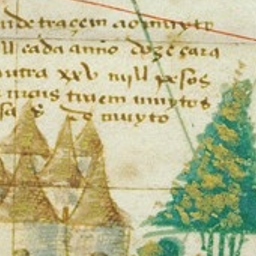 de traçem ao muyto
cada anño doze cara
outra xxb mjll pesos
mais tiuem muytos
sa s de muyto